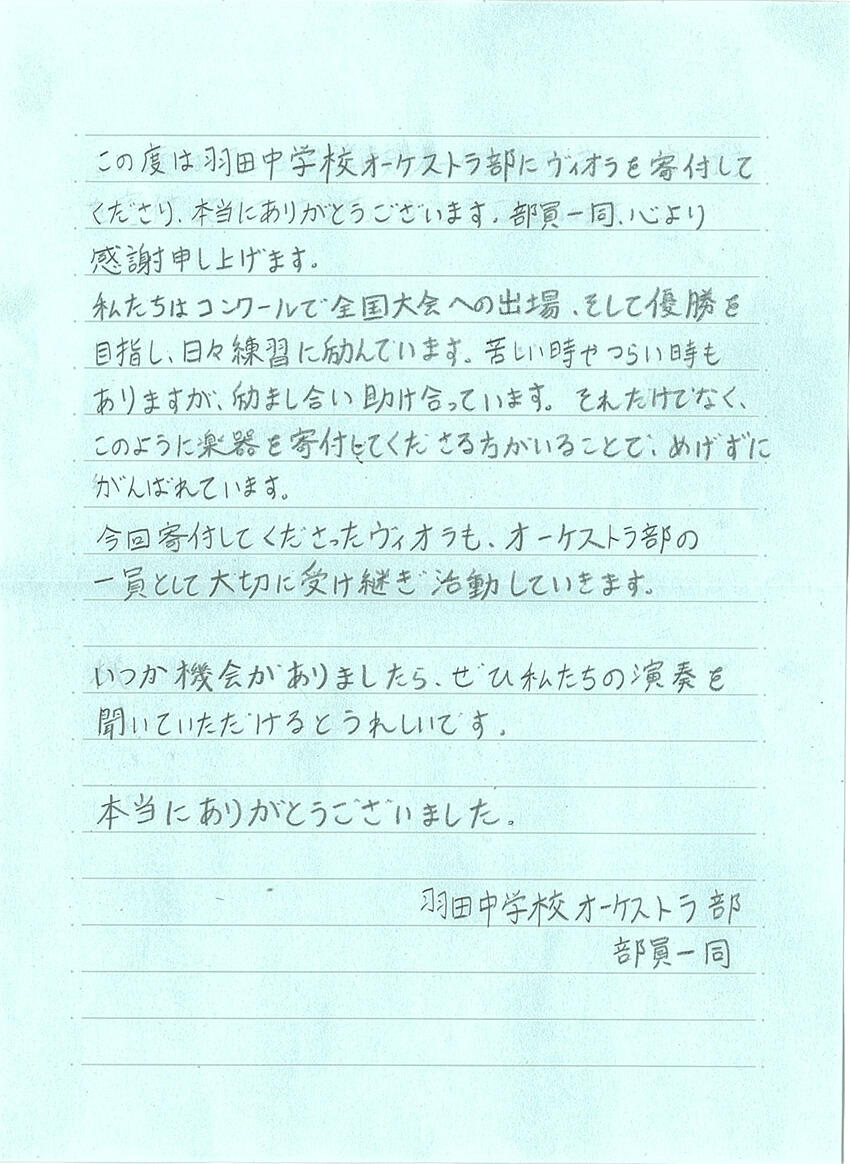 この度は羽田中学校オーケストラ部にヴィオラを寄付して
くださり、本当にありがとうございます。部員一同、心より
感謝申し上げます。
私たちはコンクールで全国大会への出場、そして優勝を
目指し、日々練習に励んでいます。苦しい時やつらい時も
ありますが、励まし合い助け合っています。それだけでなく、
このように楽器を寄付してくださる方がいることで、めげずに
がんばれています。
今回寄付してくださったヴィオラも、オーケストラ部の
一員として大切に受け継ぎ活動していきます。
いつか機会がありましたら、ぜひ私たちの演奏を
聞いていただけるとうれしいです。
本当にありがとうございました。
羽田中学校オーケストラ部
部員一同